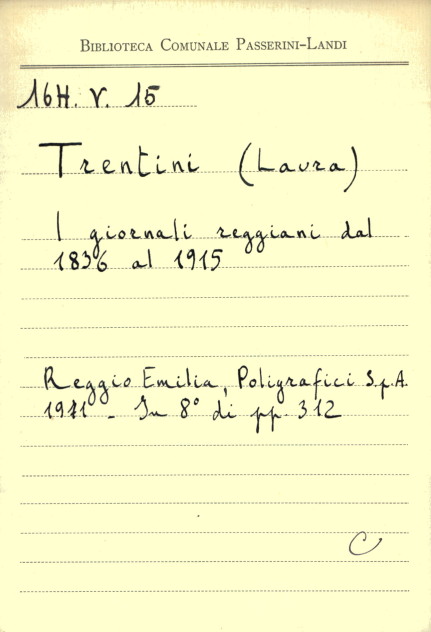 BIBLIOTECA COMUNALE PASSERINI-LANDI
16H. V. 15
Trentini (Laura)
I giornali reggiani dal
1836 al 1915
Reggio Emilia, Poligrafici S.p.A.
- In 8° di pp. 312
C